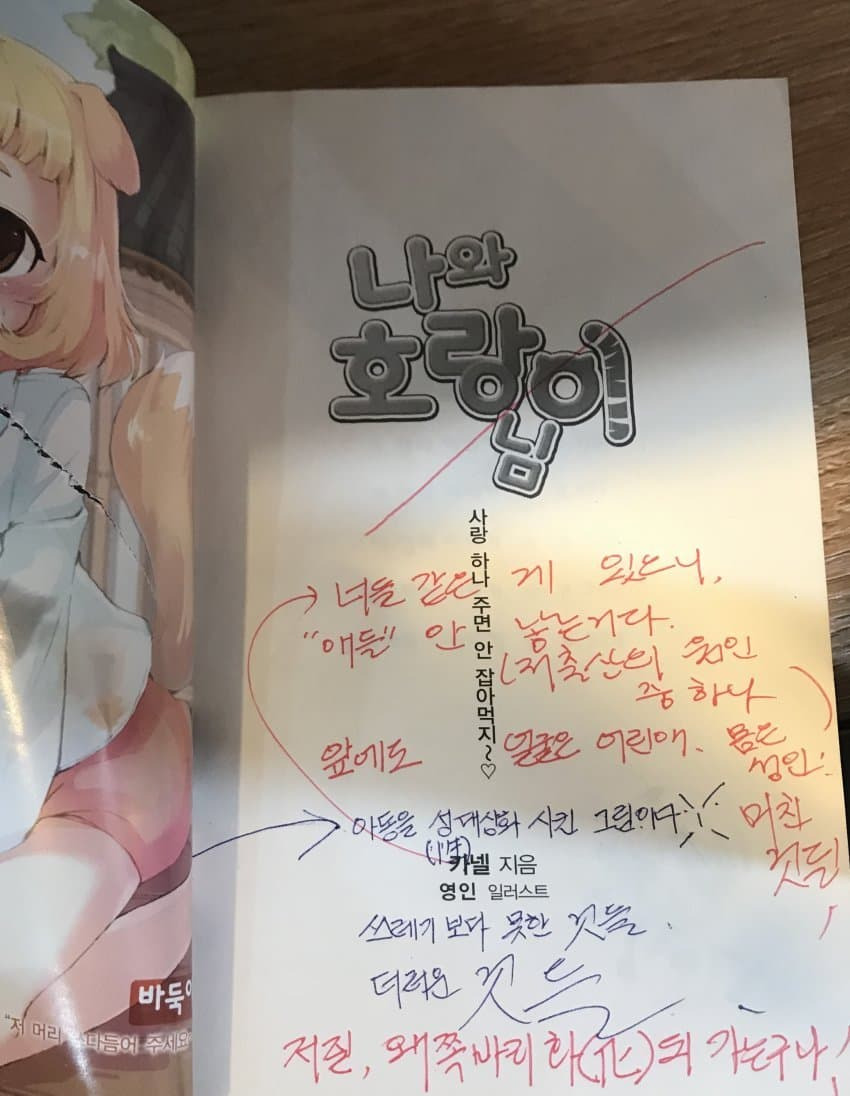 나와
호랑이
님
사랑 하나 주면 안 잡아먹지~♡
너들 같은 게 있으니,
"애들" 안 낳는거다.
(저출산의 원인
중 하나)
앞에도 얼굴은 어린애. 몸은
성인!
미친
것들!
아동을 성대상화 시킨 그림이다
(性)
카넬 지음
영인 일러스트
쓰레기 보다 못한 것들.
더러운 것들
저질, 왜쪽바리 화(化)되 가는구나!
바둑이
"저 머리 다듬어 주세요